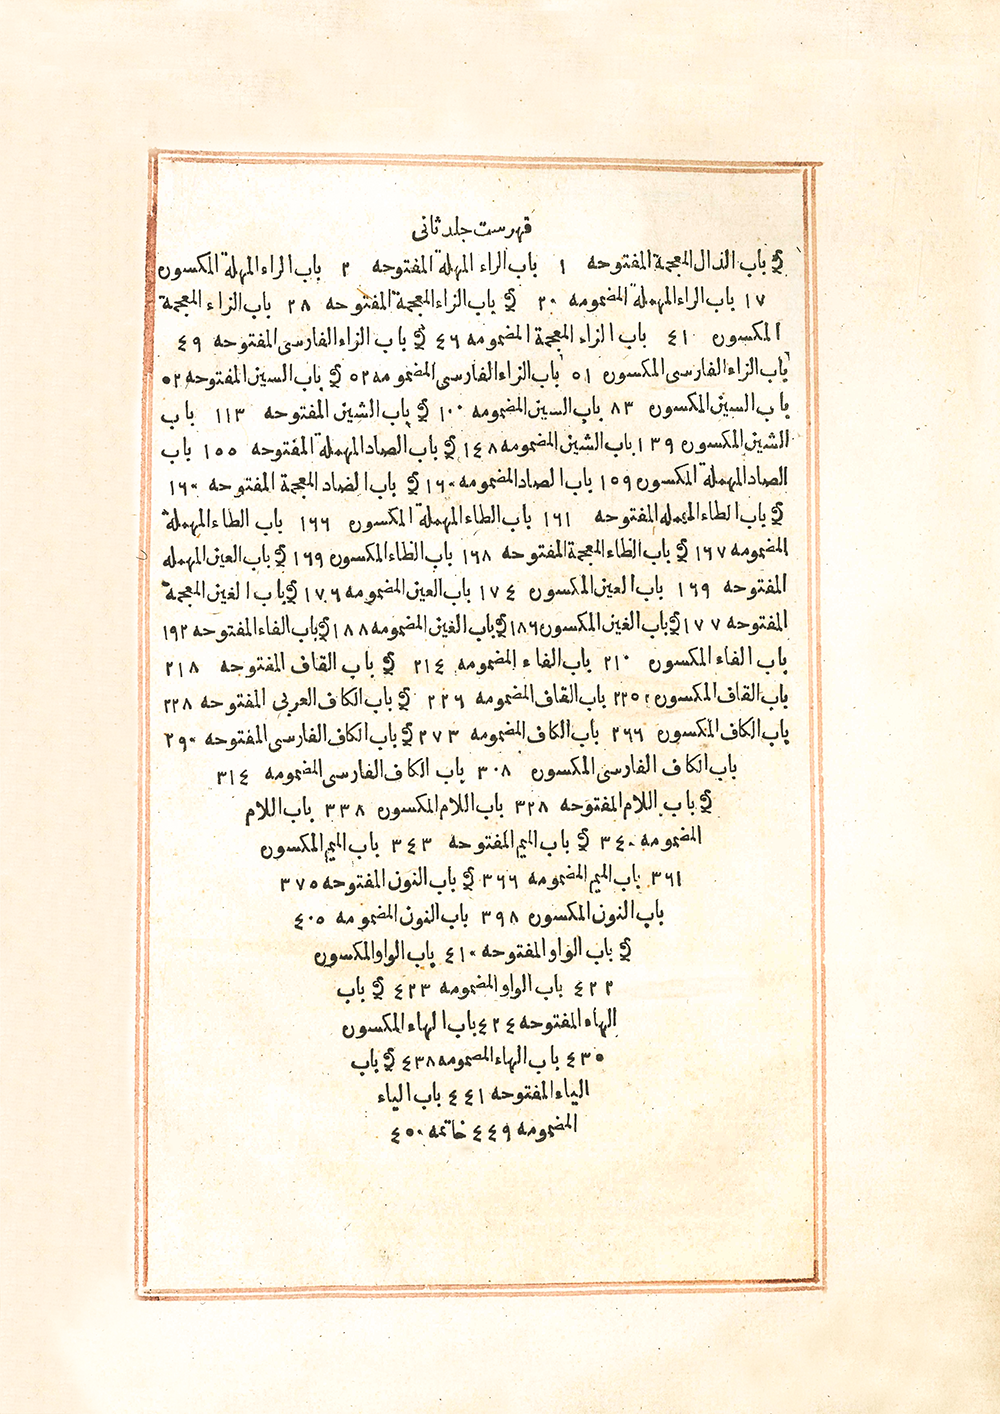 فهرست جلد ثانى
في باب الذال المعجمة المفتوحه ١ باب الراء المهملة المفتوحه ٢ باب الراء المهملة المكسور
١٧ باب الراء المهملة المضمومه ٢٠ في باب الزاء المعجمة المفتوحه ٢٨ باب الزاء المعجمة
المكسور ٤١ باب الزاء المعجمة المضمومه ٤٦ في باب الزاء الفارسى المفتوحه ٤٩
باب الزاء الفارسى المكسور ٥١ باب الزاء الفارسى المضمومه ٥٢ في باب السين المفتوحه ٥٢
باب السين المكسور ٨٣ باب السين المضمومه ١٠٠ في باب الشين المفتوحه ١١٣ باب
الشين المكسور ١٣٩ باب الشين المضمومه ١٤٨ في باب الصاد المهملة المفتوحه ١٥٥ باب
الصاد المهملة المكسور ١٥٩ باب الصاد المضمومه ١٦٠ في باب الضاد المعجمة المفتوحه ١٦٠
في باب الطاء المهمله المفتوحه ١٦١ باب الطاء المهملة المكسور ١٦٦ باب الطاء المهملة
المضمومه ١٦٧ في باب الظاء المعجمة المفتوحه ١٦٨ باب الظاء المكسور ١٦٩ في باب العين المهمله
المفتوحه ١٦٩ باب العين المكسور ١٧٤ باب العين المضمومه ١٧٦ في باب الغين المعجمة
المفتوحه ١٧٧ في باب الغين المكسور ١٨٦ في باب الغين المضمومه ١٨٨ في باب الفاء المفتوحه ١٩٢
باب الفاء المكسور ٢١٠ باب الفاء المضمومه ٢١٤ في باب القاف المفتوحه ٢١٨
باب القاف المكسور ٢٢٥ باب القاف المضمومه ٢٢٦ في باب الكاف العربى المفتوحه ٢٢٨
باب الكاف المكسور ٢٦٦ باب الكاف المضمومه ٢٧٣ في باب الكاف الفارسى المفتوحه ٢٩٠
باب الكاف الفارسى المكسور ٣٠٨ باب الكاف الفارسى المضمومه ٣١٤
في باب اللام المفتوحه ٣٢٨ باب اللام المكسور ٣٣٨ باب اللام
المضمومه ٣٤٠ في باب الميم المفتوحه ٣٤٣ باب الميم المكسور
٣٦١ باب الميم المضمومه ٣٦٦ في باب النون المفتوحه ٣٧٥
باب النون المكسور ٣٩٨ باب النون المضمومه ٤٠٥
في باب الواو المفتوحه ٤١٠ باب الواو المكسور
٤٢٢ باب الواو المضمومه ٤٢٣ في باب
الهاء المفتوحه ٤٢٤ باب الهاء المكسور
٤٣٥ باب الهاء المضمومه ٤٣٨ في باب
الياء المفتوحه ٤٤١ باب الياء
المضمومه ٤٤٩ خاتمه ٤٥٠